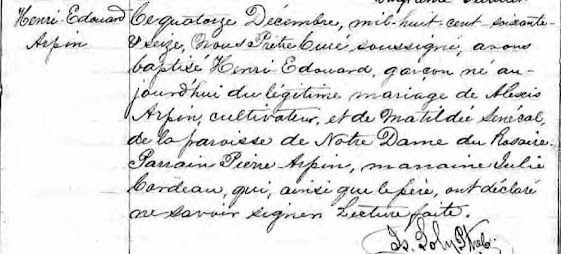 Henri Edouard
Arpin
Ce quatorze Décembre, mil-huit-cent-soixante-
& seize, Nous Prêtre Curé soussigné, avons
baptisé Henri Edouard, garçon né au-
jourd'hui du légitime mariage de Alexis
Arpin, cultivateur, et de Matildée Sénécal,
de la paroisse de Notre Dame du Rosaire.
Parrain Pierre Arpin, marraine Julie
Cordeau, qui, ainsi que le père, ont déclaré
ne savoir signer. Lecture faite.